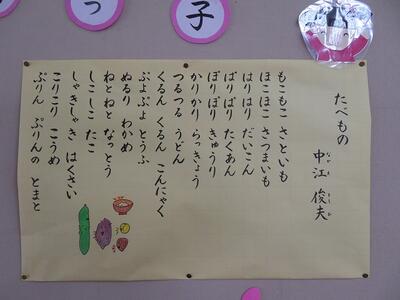 っ
子
たべもの
中江 俊夫
なかえ としお
もこもこ さといも
ほこほこ さつまいも
はりはり だいこん
ぱりぱり たくあん
ぽりぽり きゅうり
かりかり らっきょう
つるつる うどん
くるん くるん こんにゃく
ぷよぷよ とうふ
ぬるり わかめ
ねとねと なっとう
しこしこ たこ
しゃきしゃき はくさい
こりこり こうめ
ぷりん ぷりんの とまと